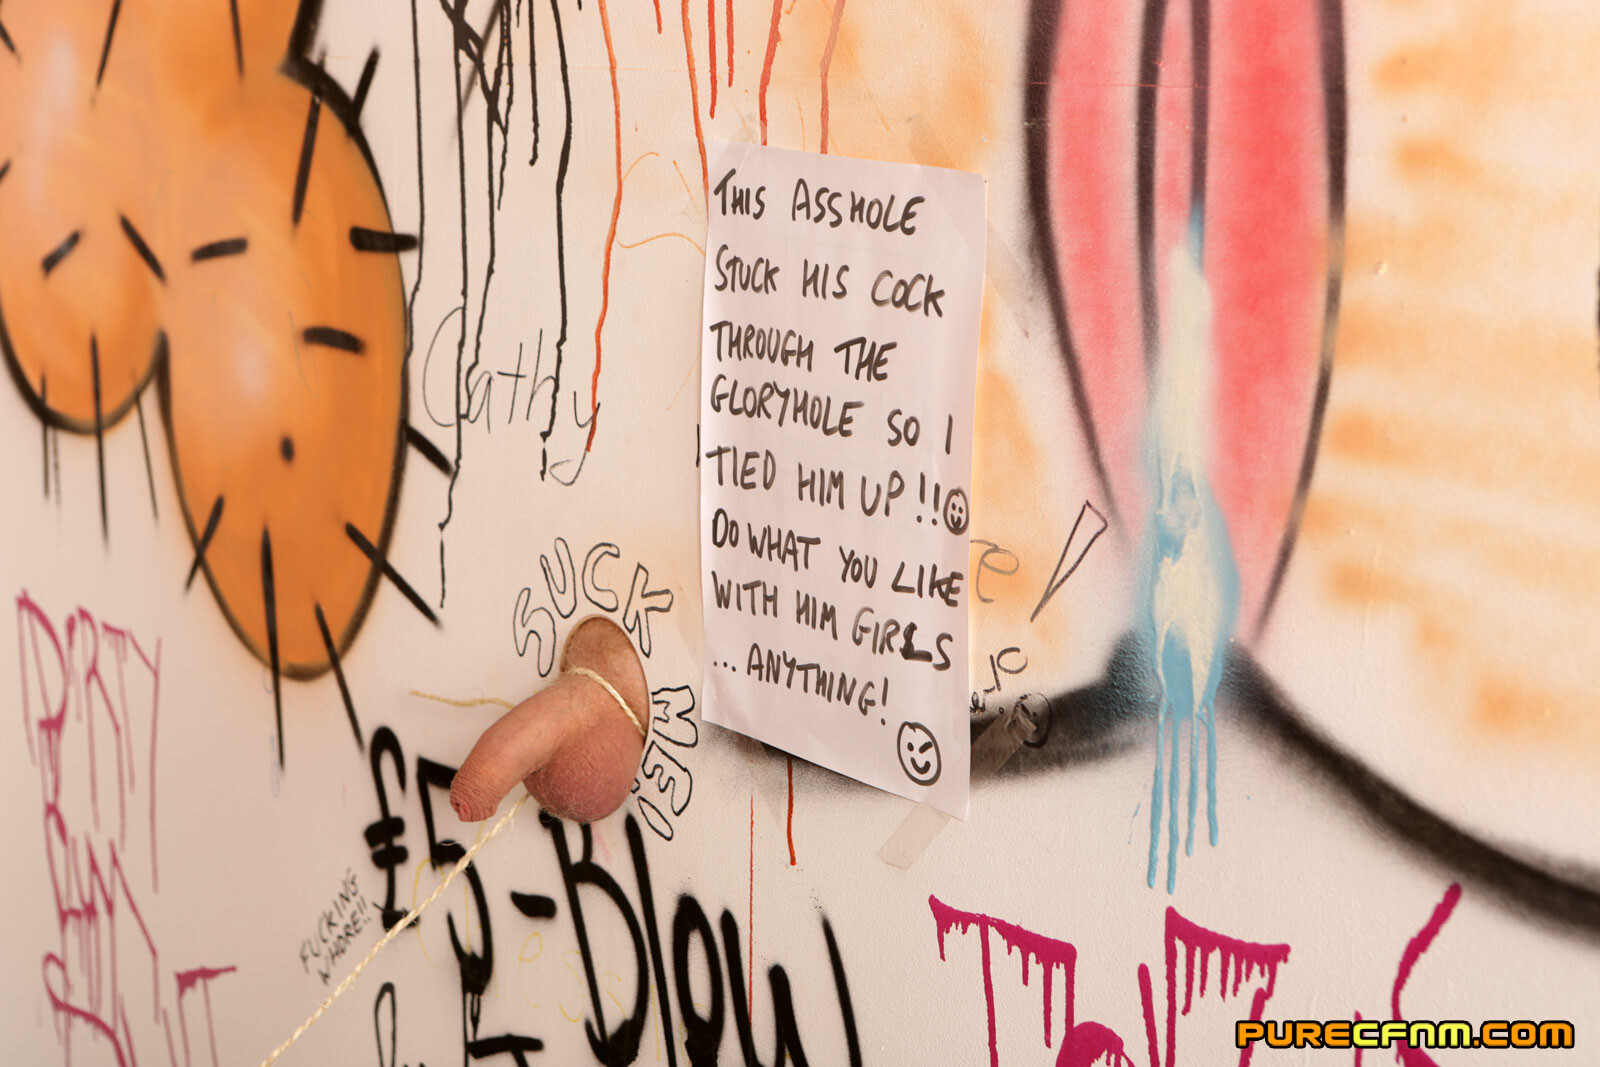 THIS ASSHOLE
STUCK HIS COCK
THROUGH THE
GLORYHOLE SO I
TIED HIM UP!!
DO WHAT YOU LIKE
WITH HIM GIRLS
...ANYTHING!
Cathy
SUCK
ME!
DIRTY
CUM
£5-Blow
FUCKING
WHORE!!
PURECFNM.COM